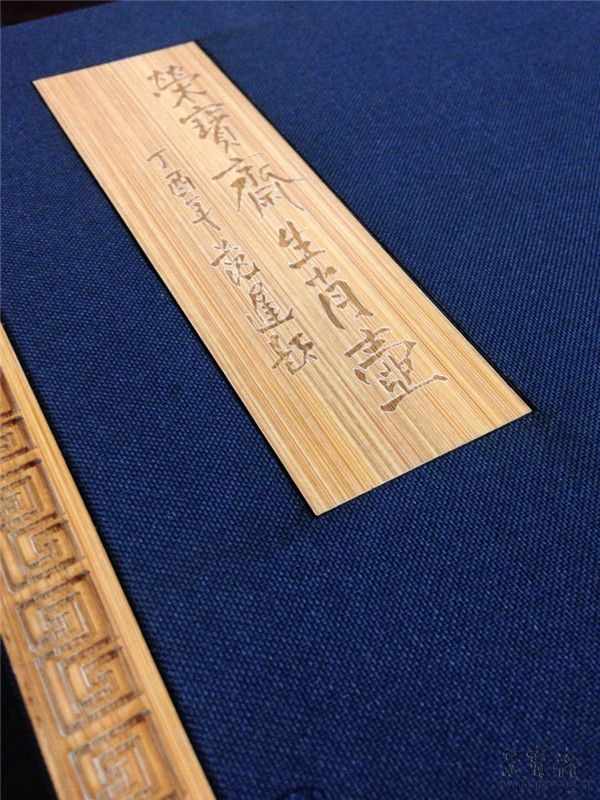 榮寶齋生肖壺
丁酉年 范遥題
榮寶齋